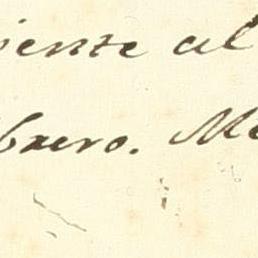 iente al
brero. Me